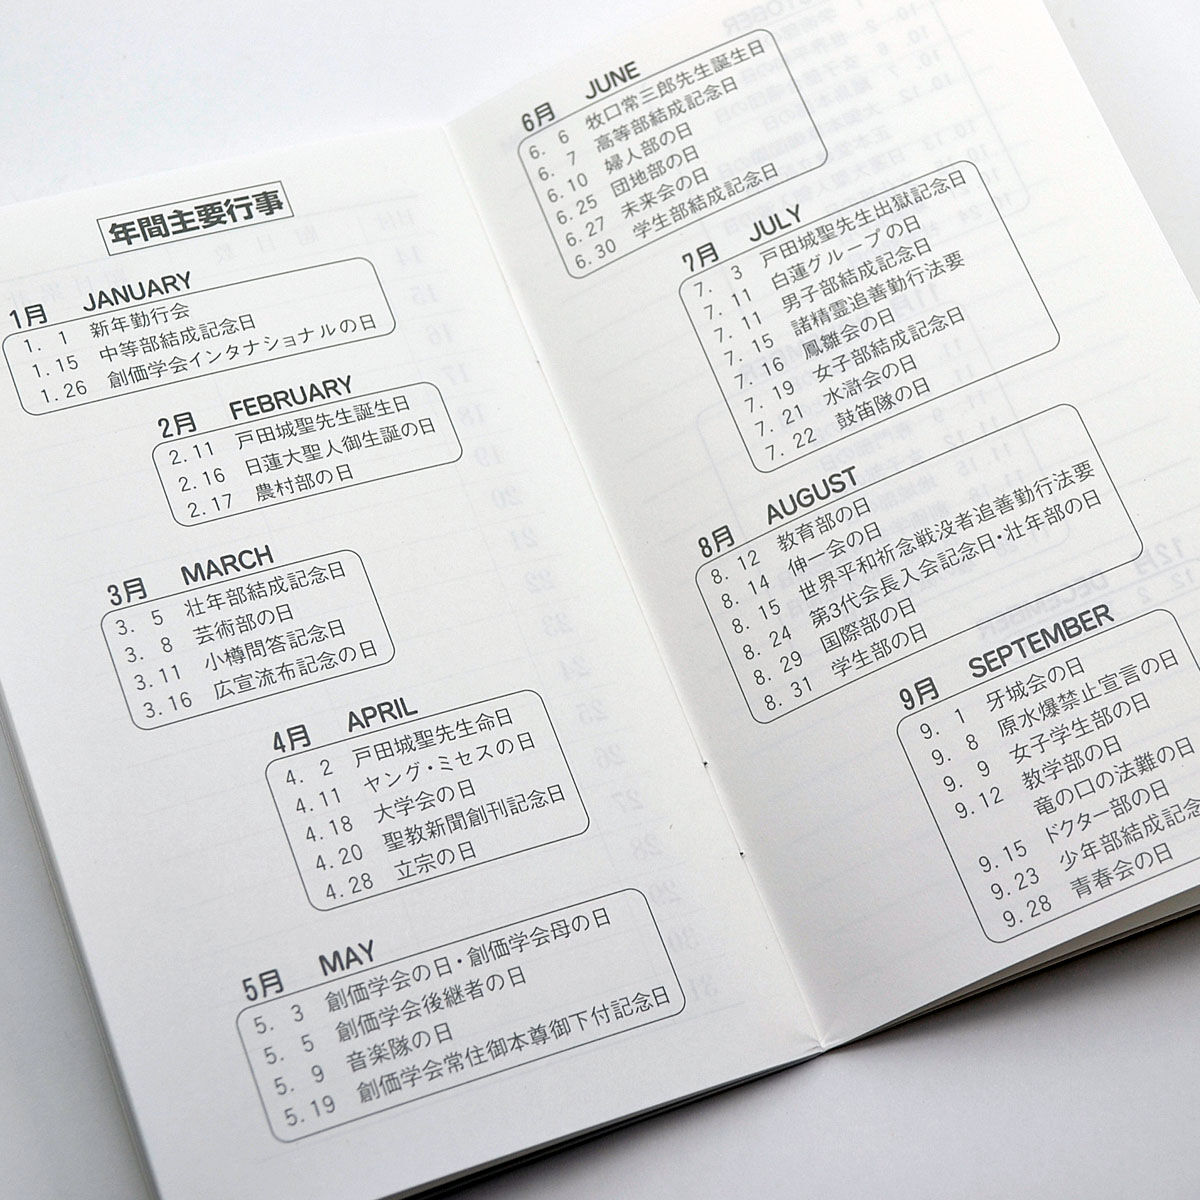 年間主要行事
1月 JANUARY
1. 1 新年勤行会
1.15 中等部結成記念日
1.26 創価学会インタナショナルの日
2月 FEBRUARY
2.11 戸田城聖先生誕生日
2.16 日蓮大聖人御生誕の日
2.17 農村部の日
3月 MARCH
3. 5 壮年部結成記念日
3. 8 芸術部の日
3.11 小樽問答記念日
3.16 広宣流布記念の日
4月 APRIL
4. 2 戸田城聖先生命日
4.11 ヤング・ミセスの日
4.18 大学会の日
4.20 聖教新聞創刊記念日
4.28 立宗の日
5月 MAY
5. 3 創価学会の日・創価学会母の日
5. 5 創価学会後継者の日
5. 9 音楽隊の日
5.19 創価学会常住御本尊御下付記念日
6月 JUNE
6. 6 牧口常三郎先生誕生日
6. 7 高等部結成記念日
6.10 婦人部の日
6.25 団地部の日
6.27 未来会の日
6.30 学生部結成記念日
7月 JULY
7. 3 戸田城聖先生出獄記念日
7. 11 白蓮グループの日
7. 11 男子部結成記念日
7. 15 諸精霊追善勤行法要
7. 16 鳳雛会の日
7. 19 女子部結成記念日
7. 21 水滸会の日
7. 22 鼓笛隊の日
8月 AUGUST
8. 12 教育部の日
8. 14 伸一会の日
8. 15 世界平和祈念戦没者追善勤行法要
8. 24 第3代会長入会記念日・壮年部の日
8. 29 国際部の日
8. 31 学生部の日
9月 SEPTEMBER
9. 1 牙城会の日
9. 8 原水爆禁止宣言の日
9. 9 女子学生部の日
9.12 教学部の日
竜の口の法難の日
9.15 ドクター部の日
9.23 少年部結成記念
9.28 青春会の日